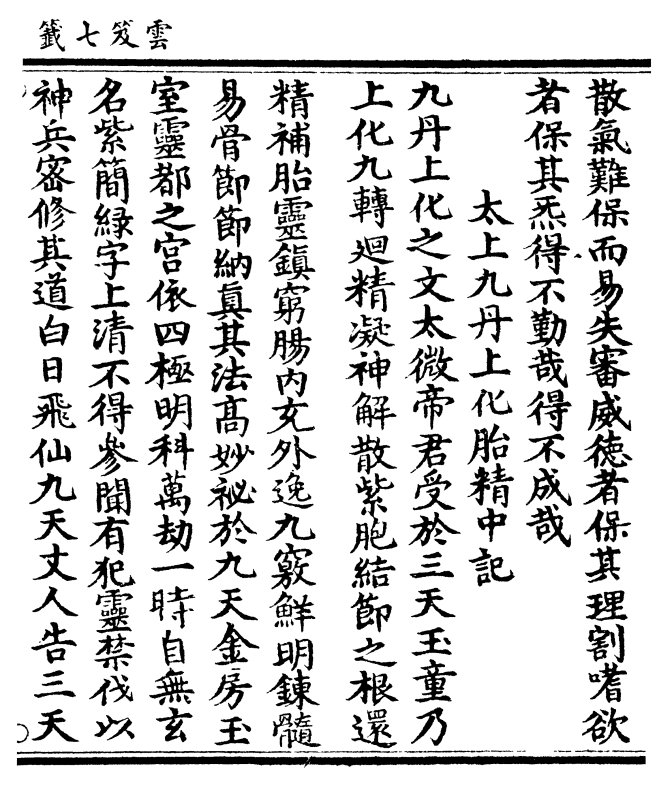 雲笈七籤
散氣難保而易失審威徳者保其理割嗜欲
者保其炁得不勤哉得不成哉
太上九丹上化胎精中記
九丹上化之文太微帝君受於三天玉童乃
上化九轉迴精凝神解散紫胞結節之根還
精補胎靈鎮窮腸内充外逸九竅鮮明錬髓
易骨節節納真其法高妙祕於九天金房玉
室靈都之宫依四極明科萬劫一時自無玄
名紫簡緑字上清不得參聞有犯靈禁伐以
神兵密修其道白日飛仙九天丈人告三天